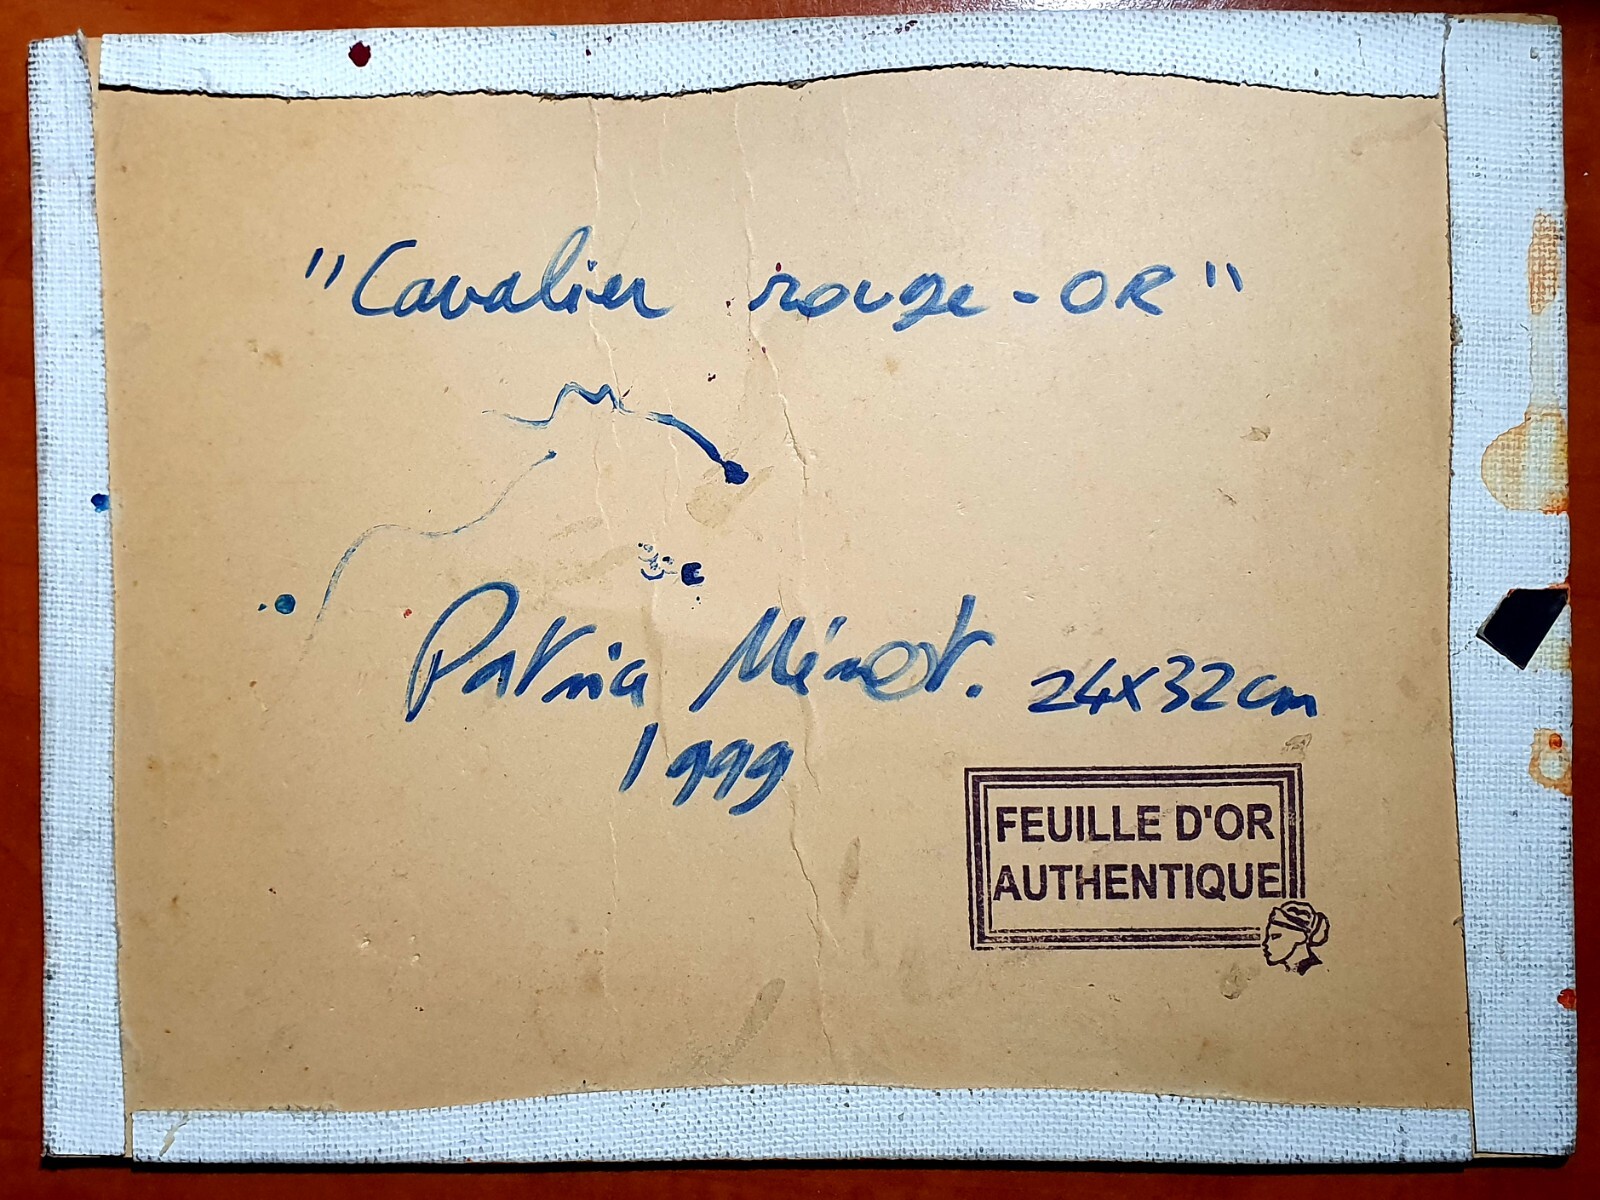 "Cavalier rouge-OR"
Patricia Ménot. 24x32cm
1999
FEUILLE D'OR
AUTHENTIQUE